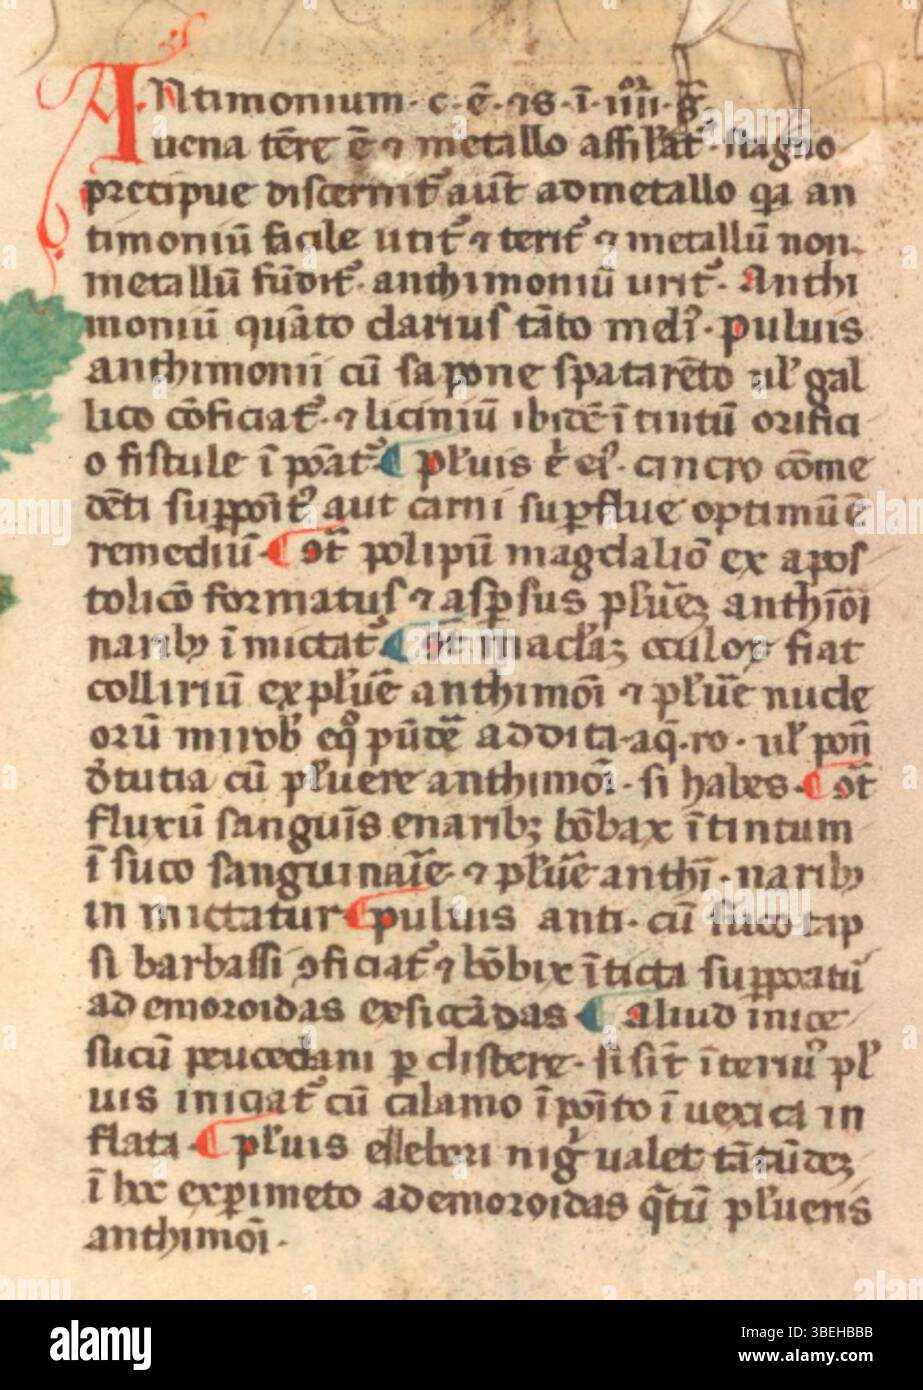 ANtimonium · c · ē · ⁊ s · ī · iiii · g̅ ·
uena t̄re ē ⁊ metallo assil̄at̄ · stagno
precipue discernit̄ aut̄ ad metallo qa an
timoniū facile utit̄ ⁊ terit̄ ⁊ metallū non
metallū fūdit̄ · anthimoniū urit̄ · Anthi
moniū quāto clarius tāto meli᷒ · puluis
anthimonii cū sapone spatarēto ul̄ gal
lico cōficiat̄ · ⁊ liciniū ibidē ītintū orifici
o fistule ī pōat̄ ¶ pl̄uis ē ei᷒ · cancro cōme
dēti suppōit̄ aut carni supflue optimū ē
remediū ¶ ọt̄ polipū magdaliō ex apos
tolicō formatus ⁊ aspsus pl̄ūeꝫ anthīōi
naribꝫ īmictat̄ ¶ ọt̄ maclaꝫ oculoꝝ fiat
colliriū ex pl̄uē anthimōi ⁊ pl̄uē nucle
orū mirob̄ eq̄ pūdē addita aq̄ · ro · ul̄ pon̄
ꝺ̄ tutia cū pl̄uere anthimōi · si habes ¶ ọt̄
fluxū sanguīs enaribꝫ bōbax ītintum
ī suco sanguinaīe ⁊ pl̄uē anthī · naribꝫ
in mictatur ¶ puluis anti · cū suco tap
si barbassi ꝯficiat̄ ⁊ bōbix ītīcta suppoatū
ad emoroidas exsiccādas ¶ aliud inice
sucū peucedani p clistere · si sīt īteri᷒ pl̄
uis iniciat̄ cū calamo īpōito ī uexica in
flata ¶ pl̄uis ellebori nig᷒ ualet tātūdeꝫ
ī hoc experimēto ad emoroidas q̄tū pl̄ueris
anthimōi ·
alamy
Image ID: 3BEHBBB
www.alamy.com